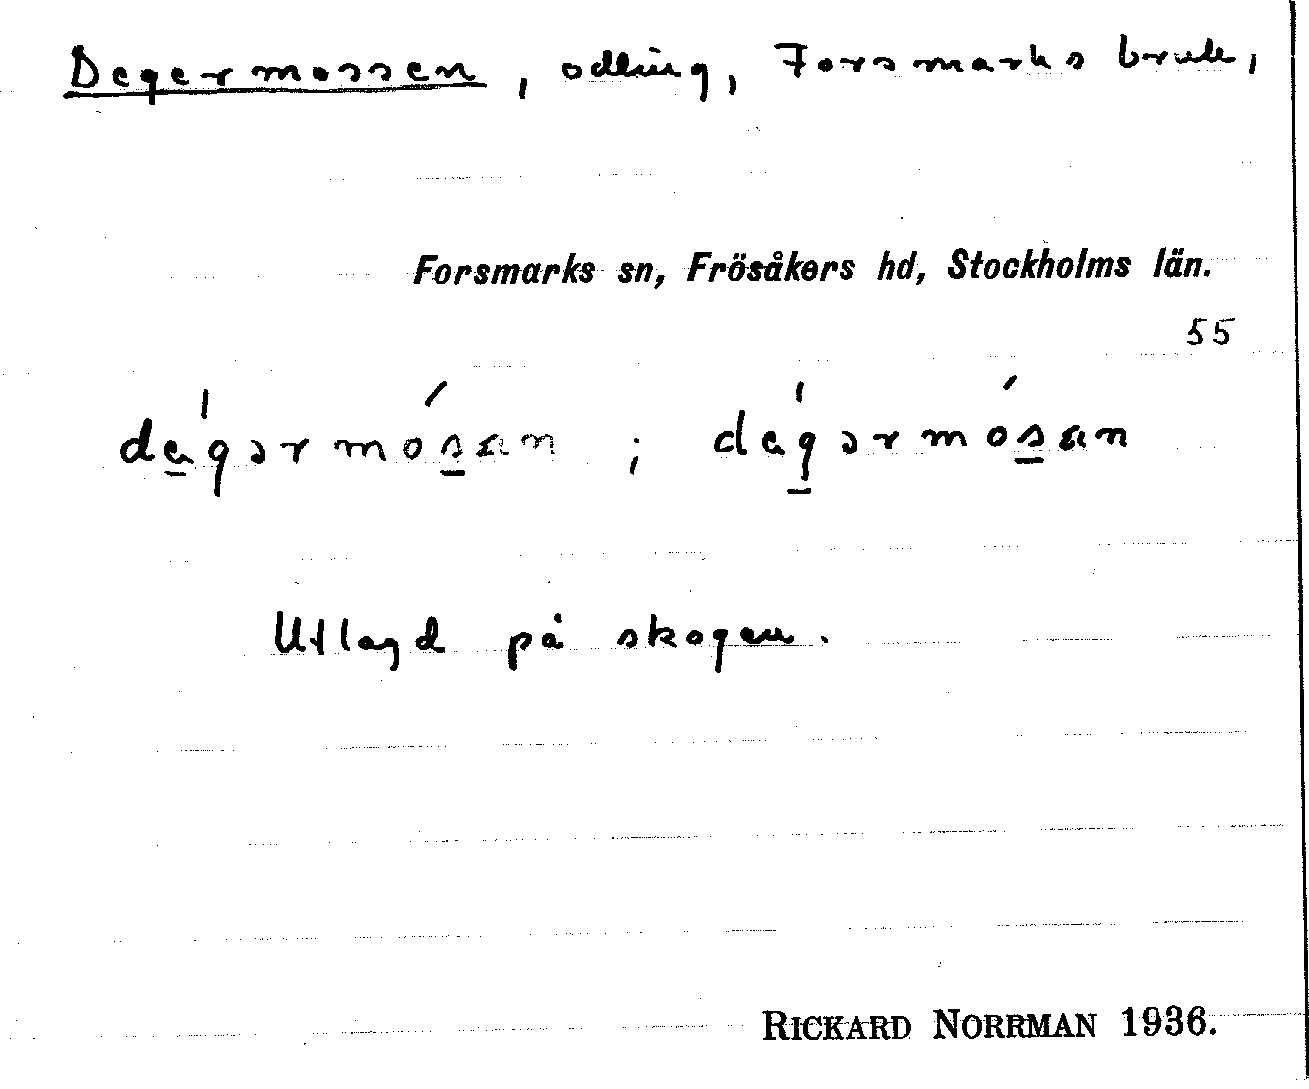 Degermossen, odling, Forsmarks bruk,
Forsmarks sn, Frösåkers hd, Stockholms län.
55
de̲gərmos̲an ; deg̲ərmos̲an
Utlagd på skogen.
RICKARD NORRMAN 1936.